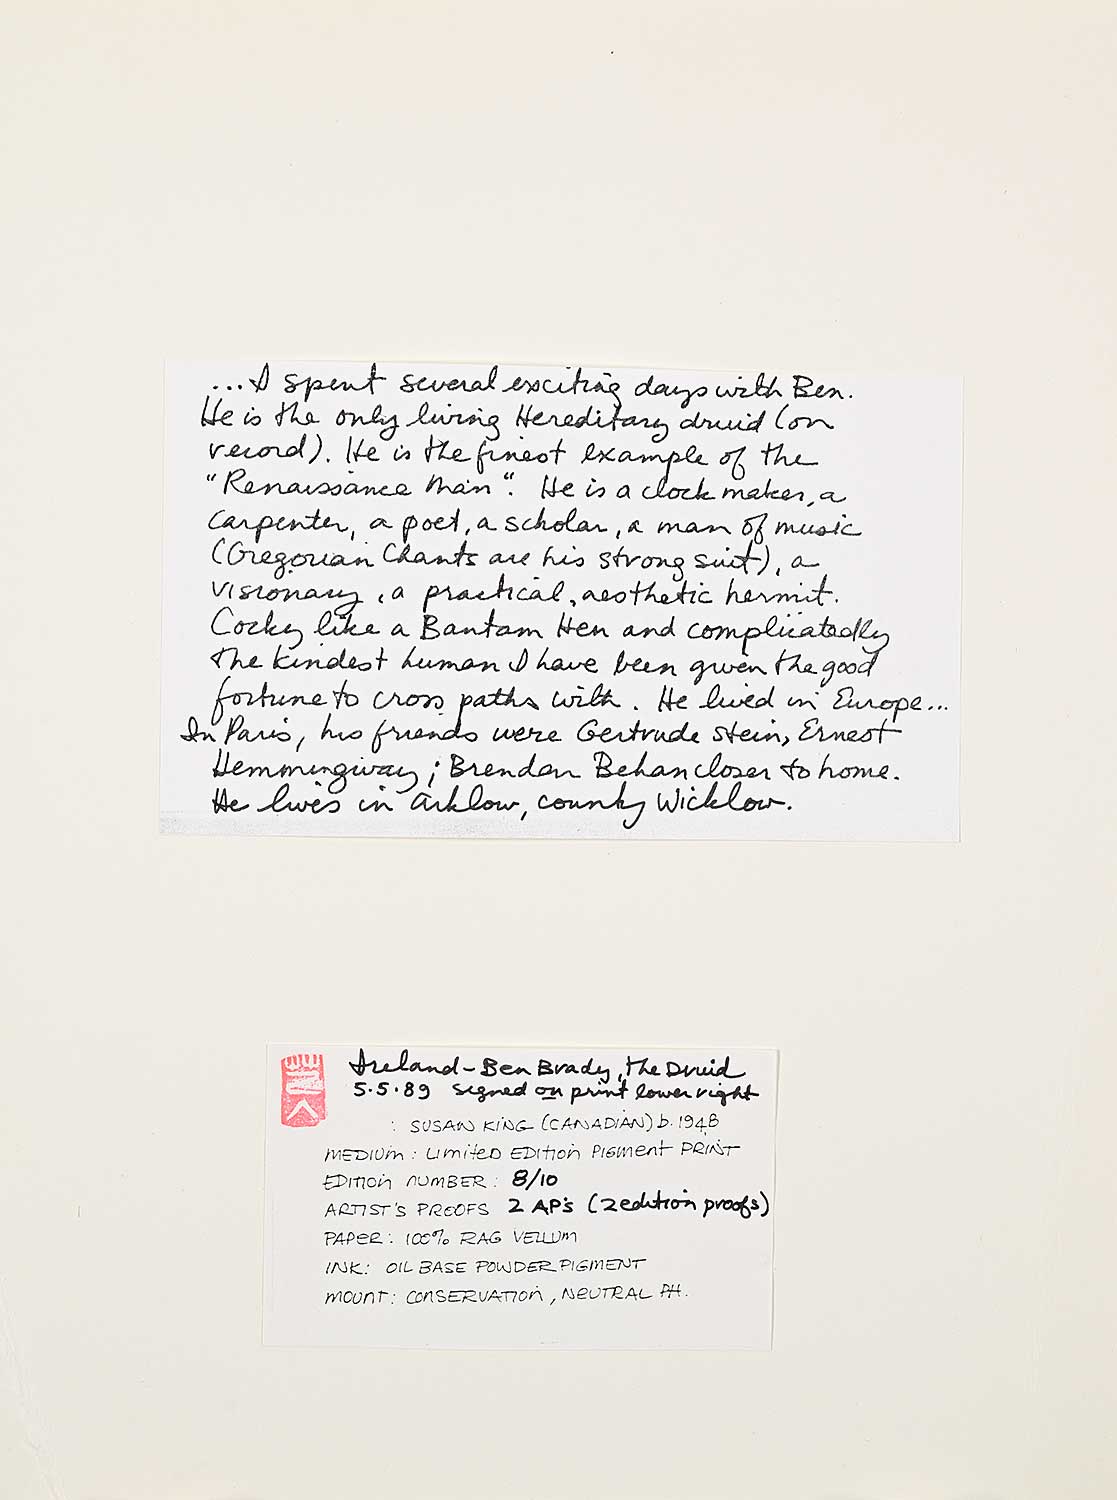 ...I spent several exciting days with Ben.
He is the only living Hereditary druid (on
record). He is the finest example of the
"Renaissance Man". He is a clock maker, a
carpenter, a poet, a scholar, a man of music
(Gregorian Chants are his strong suit), a
visionary, a practical, aesthetic hermit.
Cocky like a Bantam Hen and complicatedly
the kindest human I have been given the good
fortune to cross paths with. He lived in Europe...
In Paris, his friends were Gertrude Stein, Ernest
Hemmingway; Brendan Behan closer to home.
He lives in Arklow, county Wicklow.
Ireland - Ben Brady, the Druid
5.5.89 signed on print lower right
: SUSAN KING (CANADIAN) b. 1948
MEDIUM: LIMITED EDITION PIGMENT PRINT
EDITION NUMBER: 8/10
ARTIST'S PROOFS 2 AP's (2 edition proofs)
PAPER: 100% RAG VELLUM
INK: OIL BASE POWDER PIGMENT
MOUNT: CONSERVATION, NEUTRAL PH.